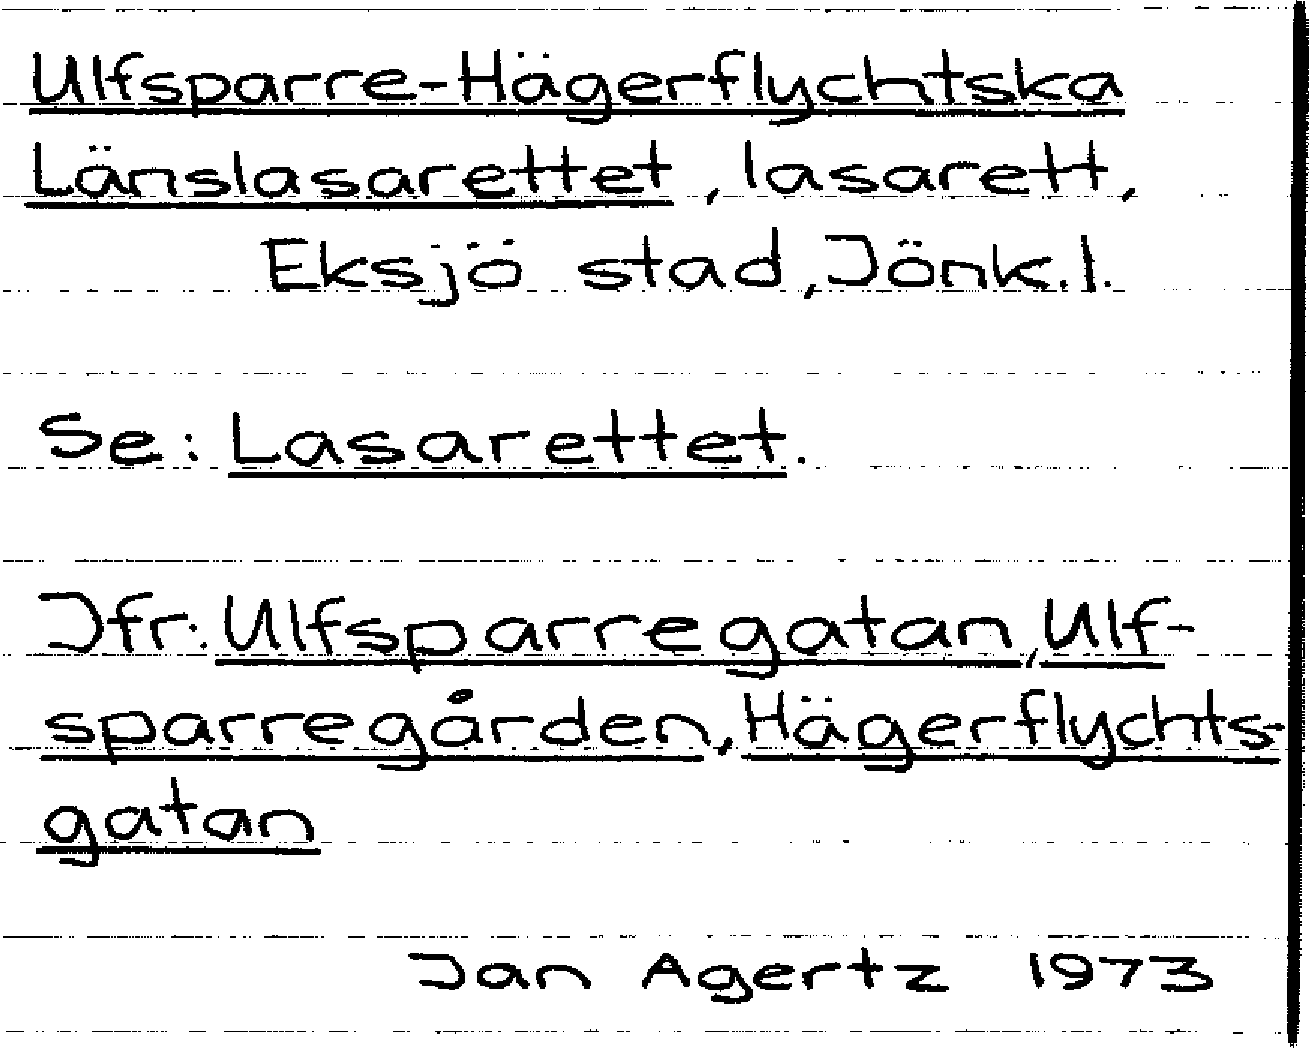 Ulfsparre-Hägerflychtska
Länslasarettet, lasarett,
Eksjö stad, Jönk.l.
Se: Lasarettet.
Jfr: Ulfsparregatan, Ulf-
sparregården, Hägerflychts-
gatan
Jan Agertz 1973